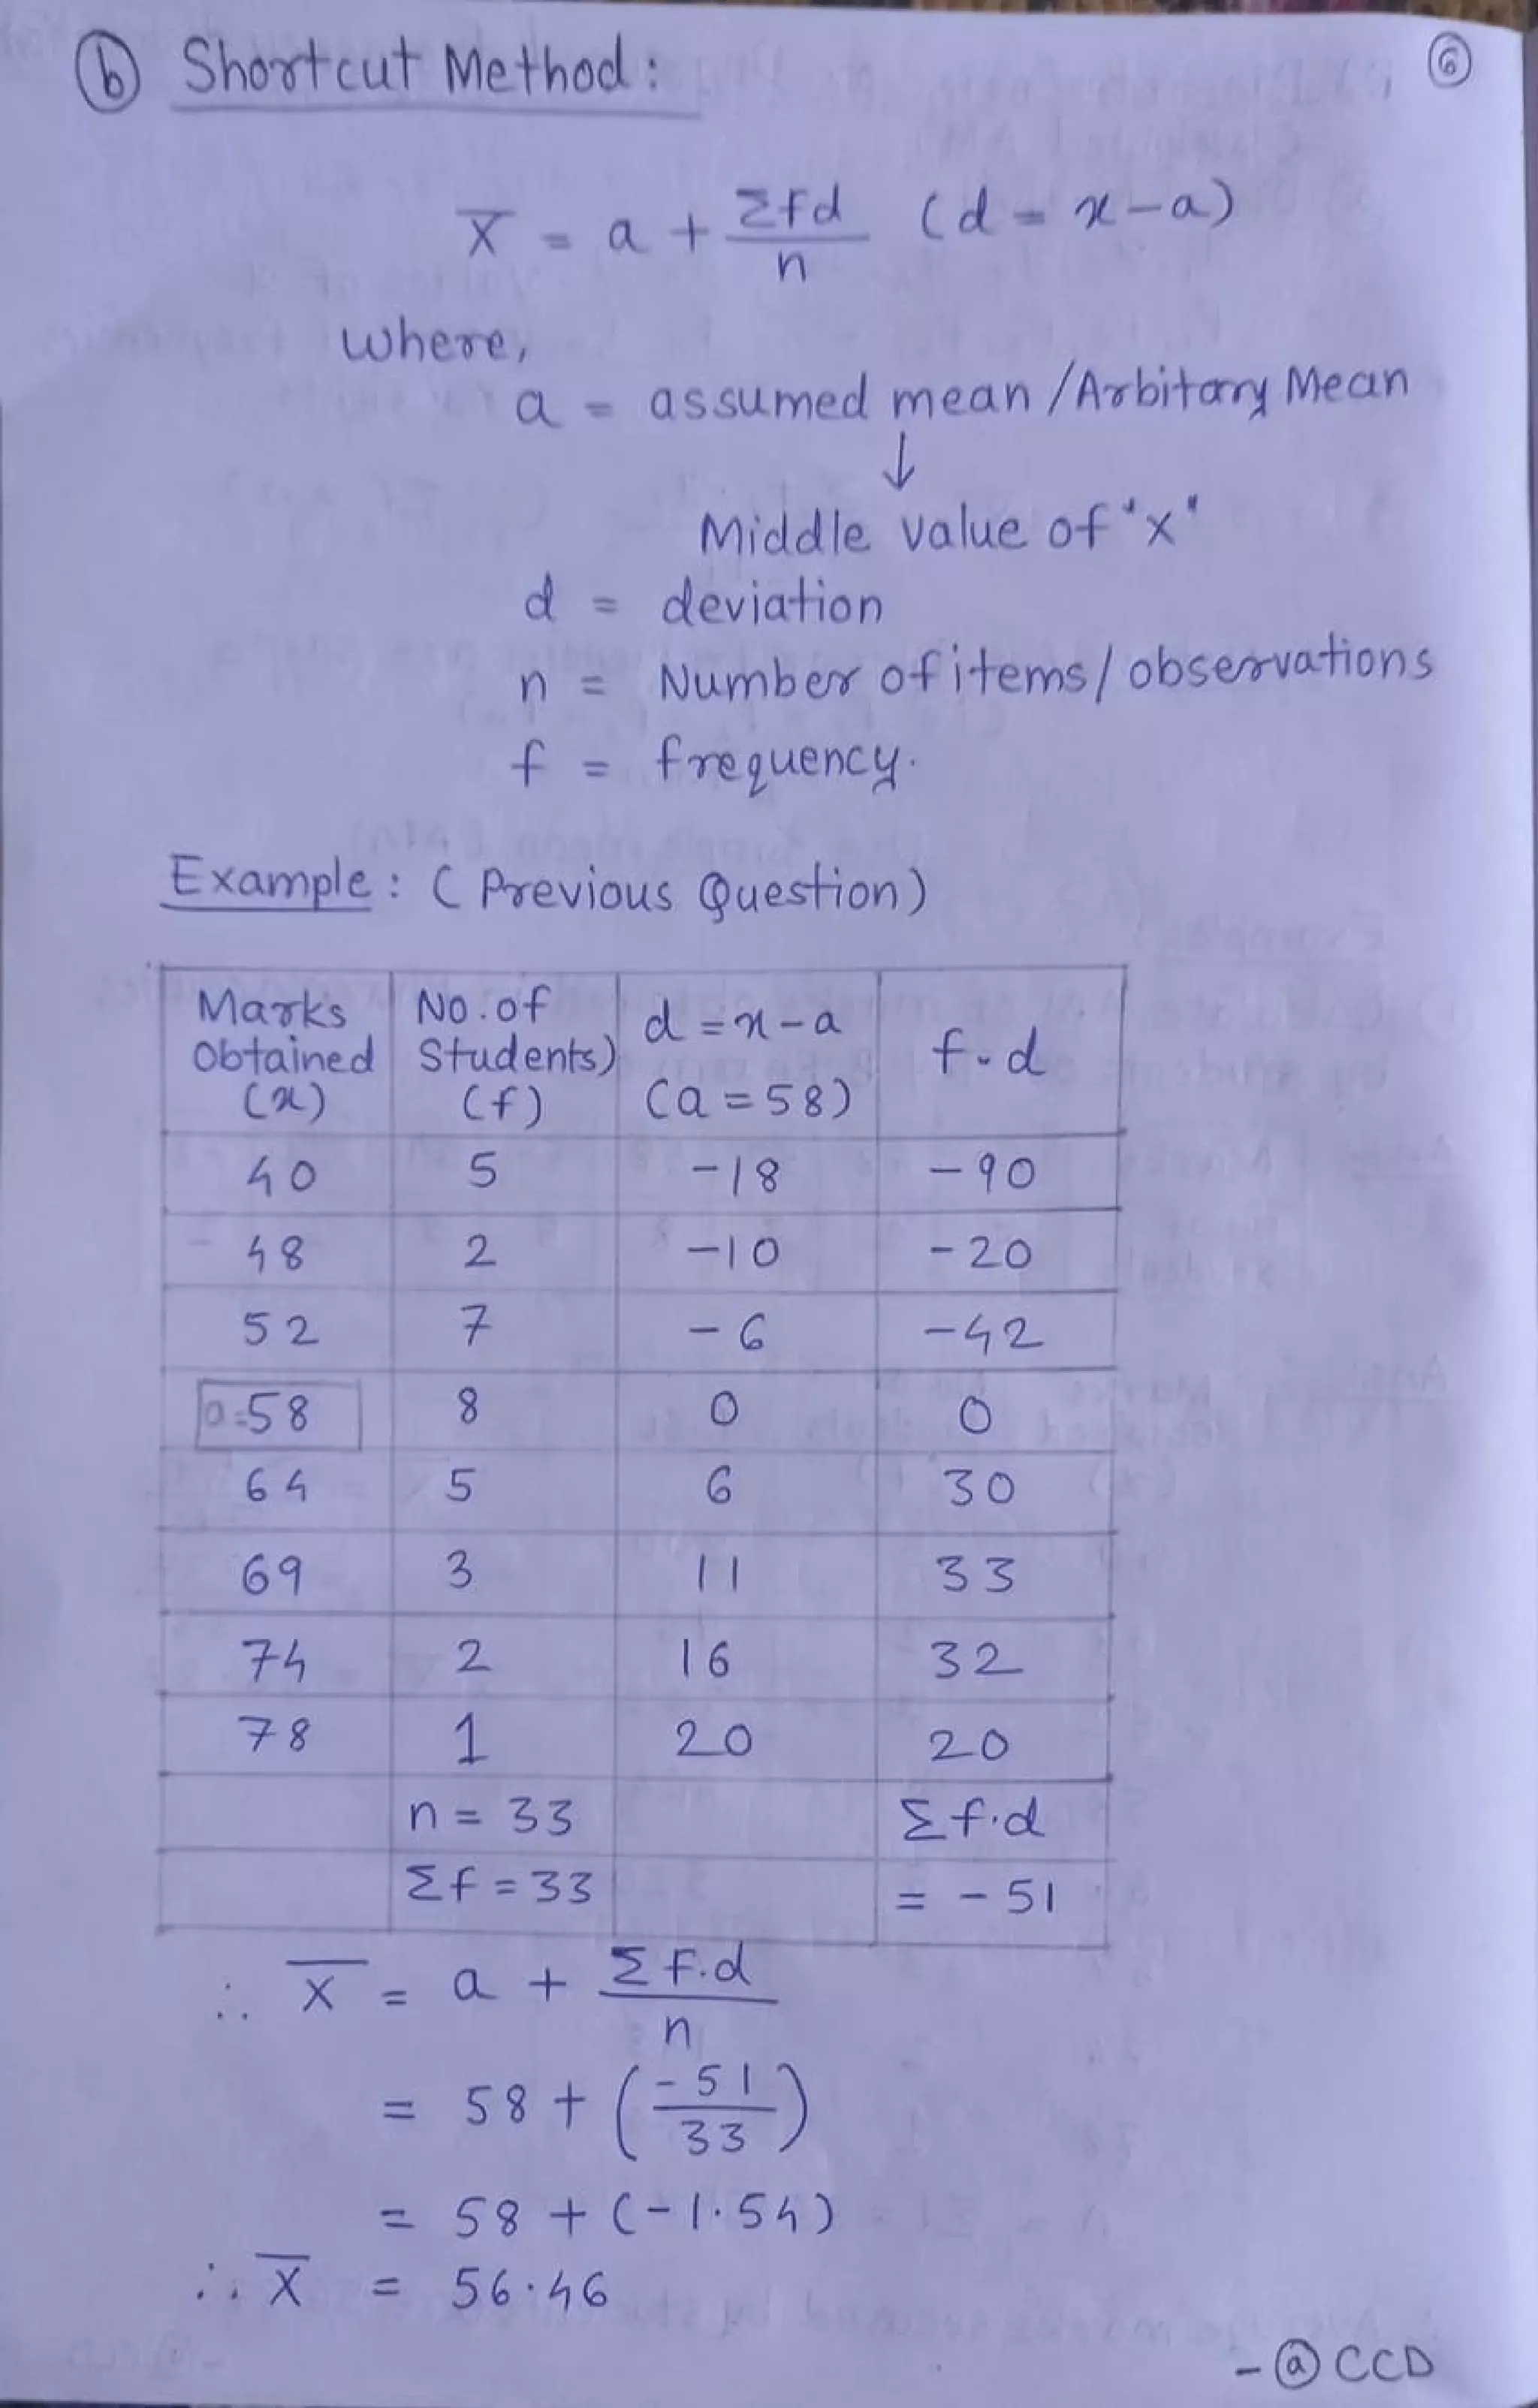 ⓑ Shortcut Method:
⑥
X̅ = a + Σfd/n (d = x-a)
where,
a = assumed mean /Arbitary Mean
↓
Middle value of "x"
d = deviation
n = Number of items/ observations
f = frequency.
Example: ( Previous Question)
Marks Obtained (x) | No. of Students) (f) | d = x-a (a = 58) | f.d
40 | 5 | -18 | -90
48 | 2 | -10 | -20
52 | 7 | -6 | -42
a=58 | 8 | 0 | 0
64 | 5 | 6 | 30
69 | 3 | 11 | 33
74 | 2 | 16 | 32
78 | 1 | 20 | 20
n = 33 | Σf.d
Σf = 33 | = -51
∴ X̅ = a + Σf.d/n
= 58 + (-51/33)
= 58 + (-1.54)
∴ X̅ = 56.46
- @ CCD